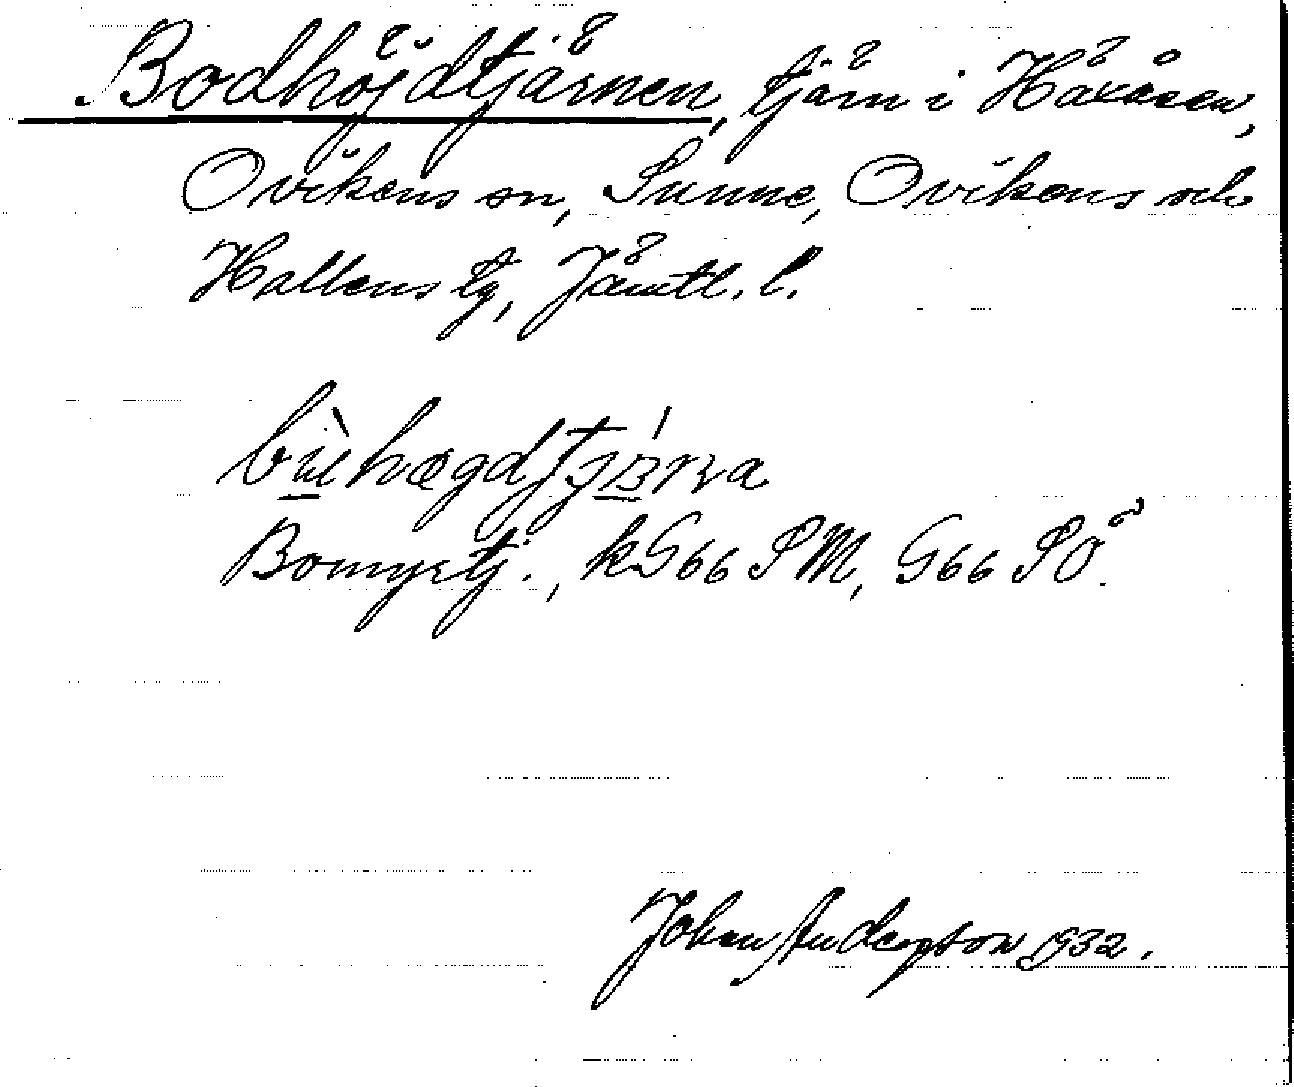 Bodhöjdtjärnen, tjärn i Häxåsen,
Ovikens sn, Sunne, Ovikens och
Hallens tg, Jämtl. l.
Bomyrtj., kG66 SM, G66 SÖ.
Johan Anderson 1932.